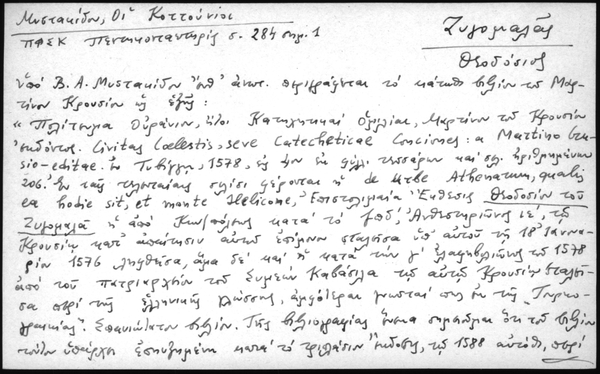 Μυστακίδου, Οἱ Κοττούνιοι
Ζυγομαλᾶς
ΠΦΣΚ Πεντηκονταετηρὶς σ. 284 σημ. 1
Θεοδόσιος
ὑπὸ Β. Α. Μυστακίδου περιγράφεται τὸ κάτωθι βιβλίον τοῦ Μαρ-
τίνου Κρουσίου ὡς ἑξῆς:
"Πολίτευμα Οὐράνιον, ἤτοι Κατηχητικαὶ Ὁμιλίαι, Μαρτίνου τοῦ Κρουσίου
ἐκδόντος. Civitas Coelestis, seve Catecheticae Conciones: a Martino Cru-
sio-editae. Ἐν Τυβίγγῃ, 1578, εἰς τεσσάρων καὶ σελ. ἠριθμημένων
206. Ἐν ταῖς τελευταίαις σελίσι φέρονται ἡ de urbe Athenarum, qualis
ea hodie sit, et monte Helicone, Ἐπιστολιμαία Ἔκθεσις Θεοδοσίου τοῦ
Ζυγομαλᾶ ἡ ἀπὸ Κων/πόλεως κατὰ τὸ Ἀνθεστηριῶνος ιε', τῷ
Κρουσίῳ κατ' ἀπαίτησιν αὐτοῦ σταλεῖσα ὑπ' αὐτοῦ τῇ 18 Ἰαννουα-
ρίου 1576 ληφθεῖσα, ἅμα δὲ καὶ ἡ κατὰ τὴν γ' Ἐλαφηβολιῶνος τοῦ 1578
ἀπὸ τοῦ πατριαρχείου τοῦ Συμεὼν Καβάσιλα τῷ αὐτῷ Κρουσίῳ σταλεῖ-
σα περὶ τῆς ἑλληνικῆς γλώσσης, ἀμφότεραι γνωσταὶ ἐν τῇ "Τουρκο-
γραικίᾳ". Σπανιώτατον βιβλίον. Τῆς βιβλιογραφίας ἕνεκα σημειοῦμαι ὅτι τοῦ βιβλίου
τούτου ὑπάρχει κατὰ τὸ ἔκδοσις, τῷ 1588 αὐτόθι, περὶ